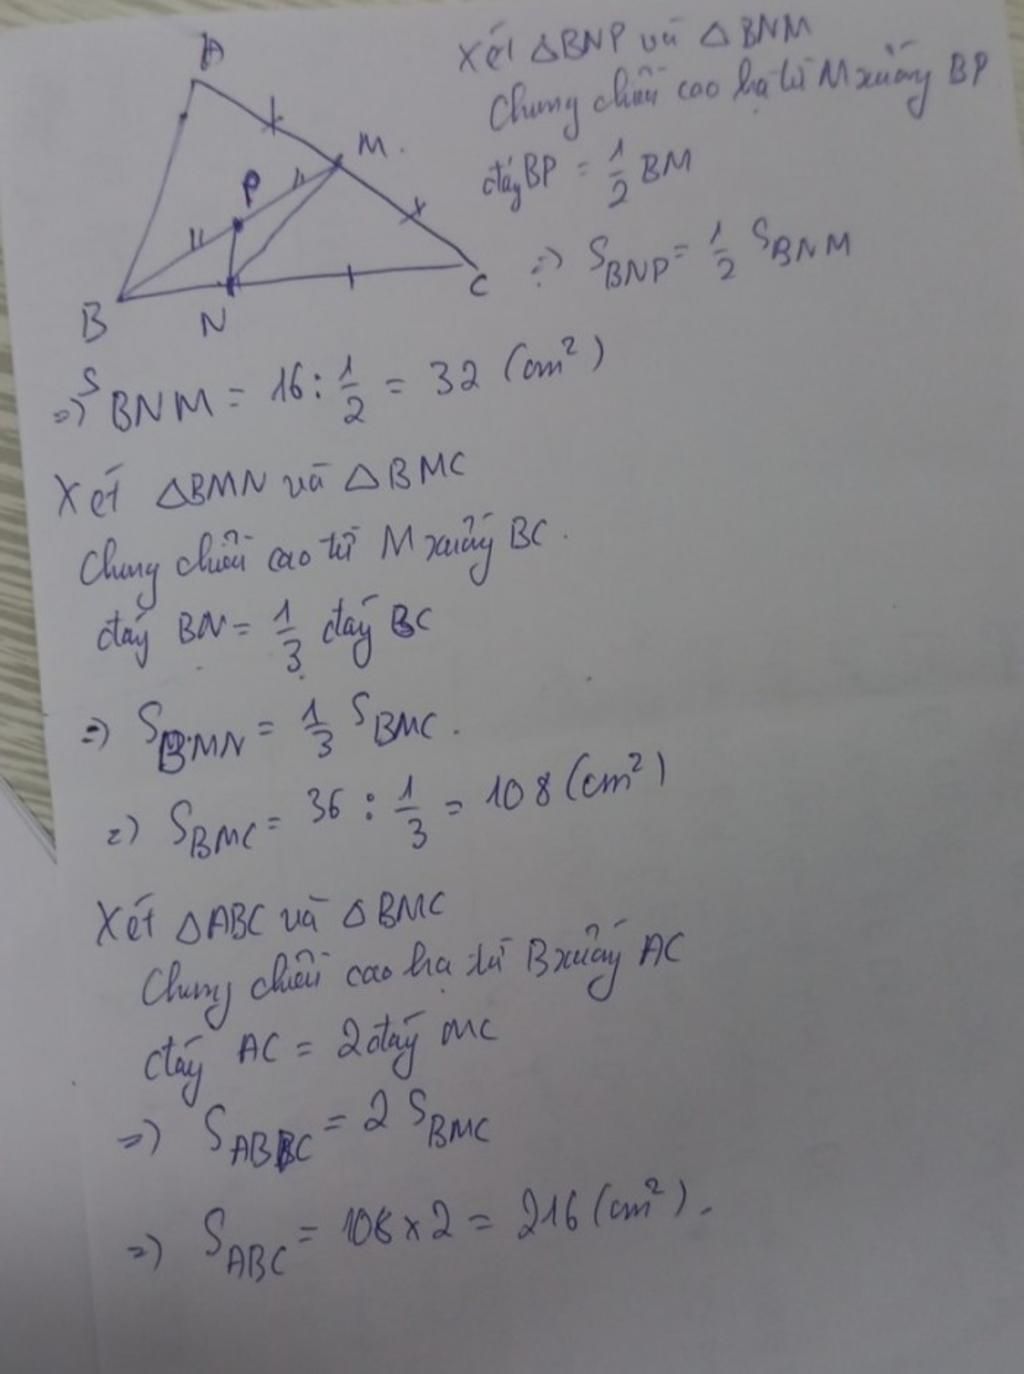 A
M.
P
B
N
C
Xét △BNP và △BNM
Chung chiều cao hạ từ M xuống BP
đáy BP = 1/2 BM
=> S BNP = 1/2 S BNM
=> S BNM = 16 : 1/2 = 32 (cm²)
Xét △BMN và △BMC
Chung chiều cao từ M xuống BC.
đáy BN = 1/3 đáy BC
=> S BMN = 1/3 S BMC.
=> S BMC = 36 : 1/3 = 108 (cm²)
Xét △ABC và △BMC
Chung chiều cao hạ từ B xuống AC
đáy AC = 2 đáy MC
=> S ABC = 2 S BMC
=> S ABC = 108 x 2 = 216 (cm²).